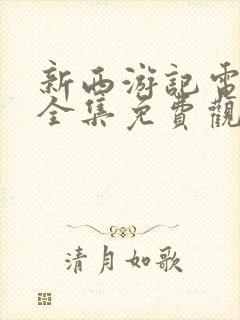 新西游記電
全集免費觀
清月如歌